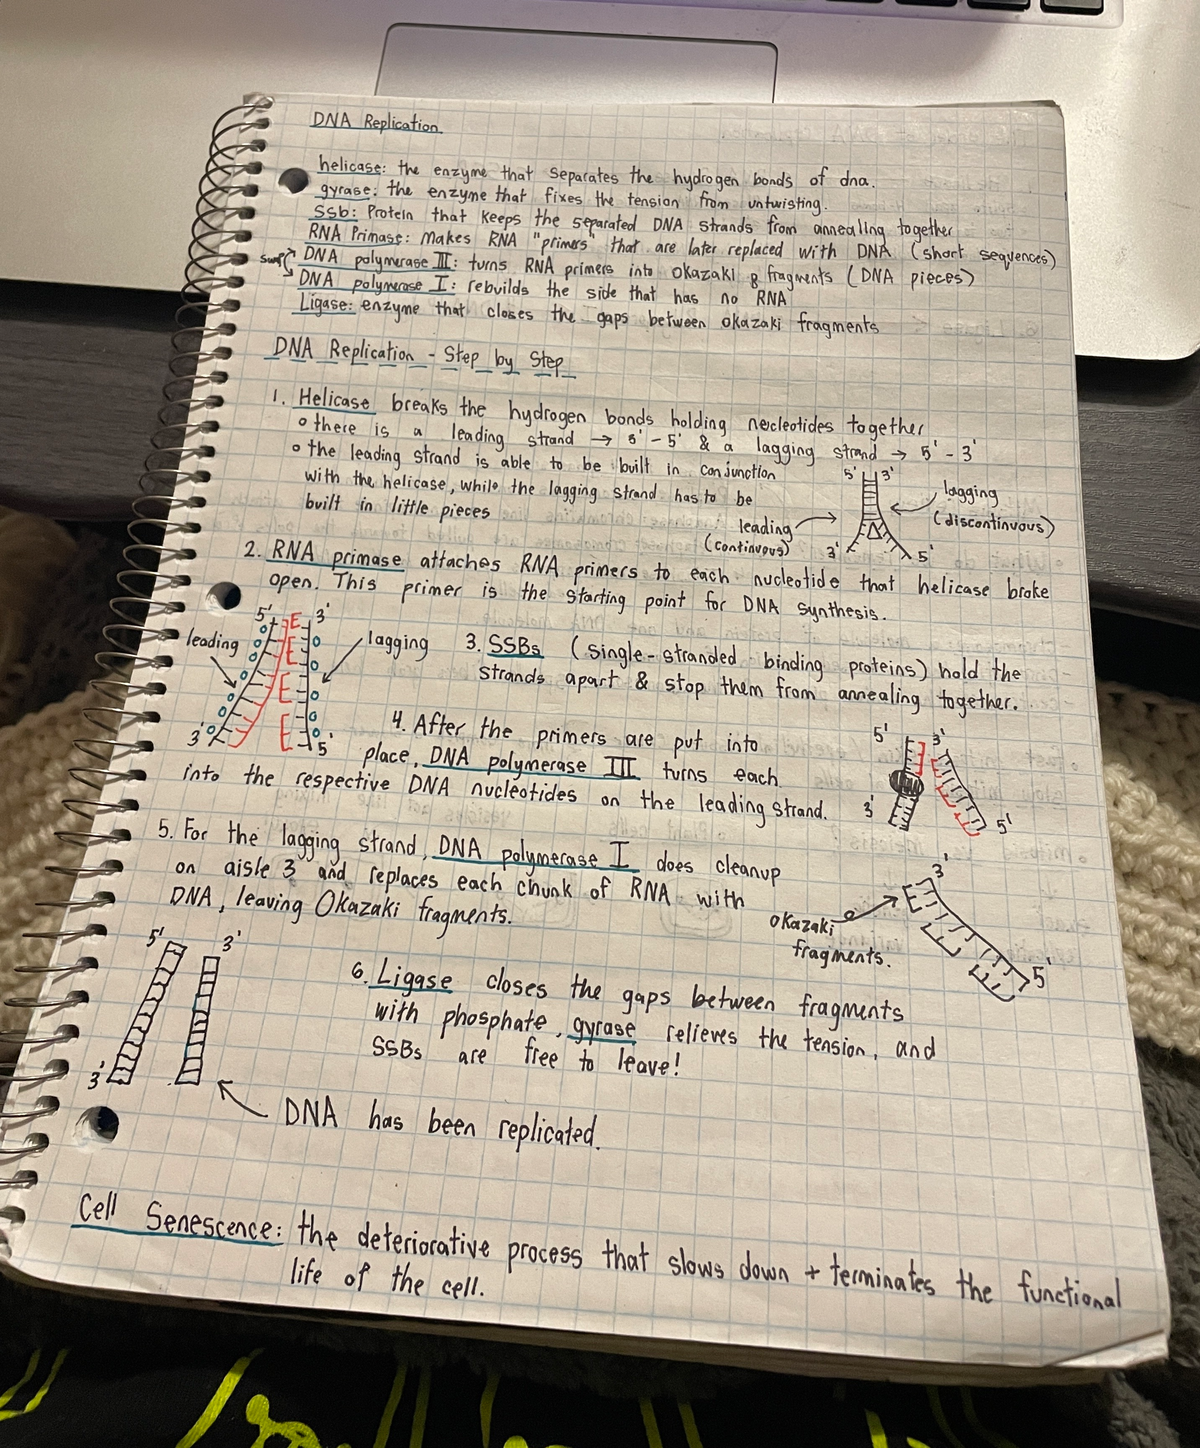 DNA Replication
helicase: the enzyme that separates the hydrogen bonds of dna.
gyrase: the enzyme that fixes the tension from untwisting.
Ssb: Protein that keeps the separated DNA strands from annealing together
RNA Primase: Makes RNA "primers" that are later replaced with DNA (short sequences)
swap DNA polymerase III: turns RNA primers into okazaki fragments (DNA pieces)
DNA polymerase I: rebuilds the side that has no RNA
Ligase: enzyme that closes the gaps between okazaki fragments
DNA Replication - Step by Step
1. Helicase breaks the hydrogen bonds holding necleotides together
there is a leading strand → 3' - 5' & a lagging strand → 5' - 3'
the leading strand is able to be built in conjunction
with the helicase, while the lagging strand has to be
built in little pieces
5' 3'
lagging
(discontinuous)
leading
(continuous)
3' 5'
2. RNA primase attaches RNA primers to each nucleotide that helicase broke
open. This primer is the starting point for DNA synthesis.
5' 3'
leading
lagging
3' 5'
3. SSBs (single-stranded binding proteins) hold the
strands apart & stop them from annealing together.
4. After the primers are put into
place, DNA polymerase III turns each
into the respective DNA nucleotides on the leading strand.
5' 3'
3' 5'
5. For the lagging strand, DNA polymerase I does cleanup
on aisle 3 and replaces each chunk of RNA with
DNA, leaving Okazaki fragments.
3'
okazaki
fragments.
5'
5' 3'
3'
6. Ligase closes the gaps between fragments
with phosphate, gyrase relieves the tension, and
SSBs are free to leave!
DNA has been replicated.
Cell Senescence: the deteriorative process that slows down + terminates the functional
life of the cell.